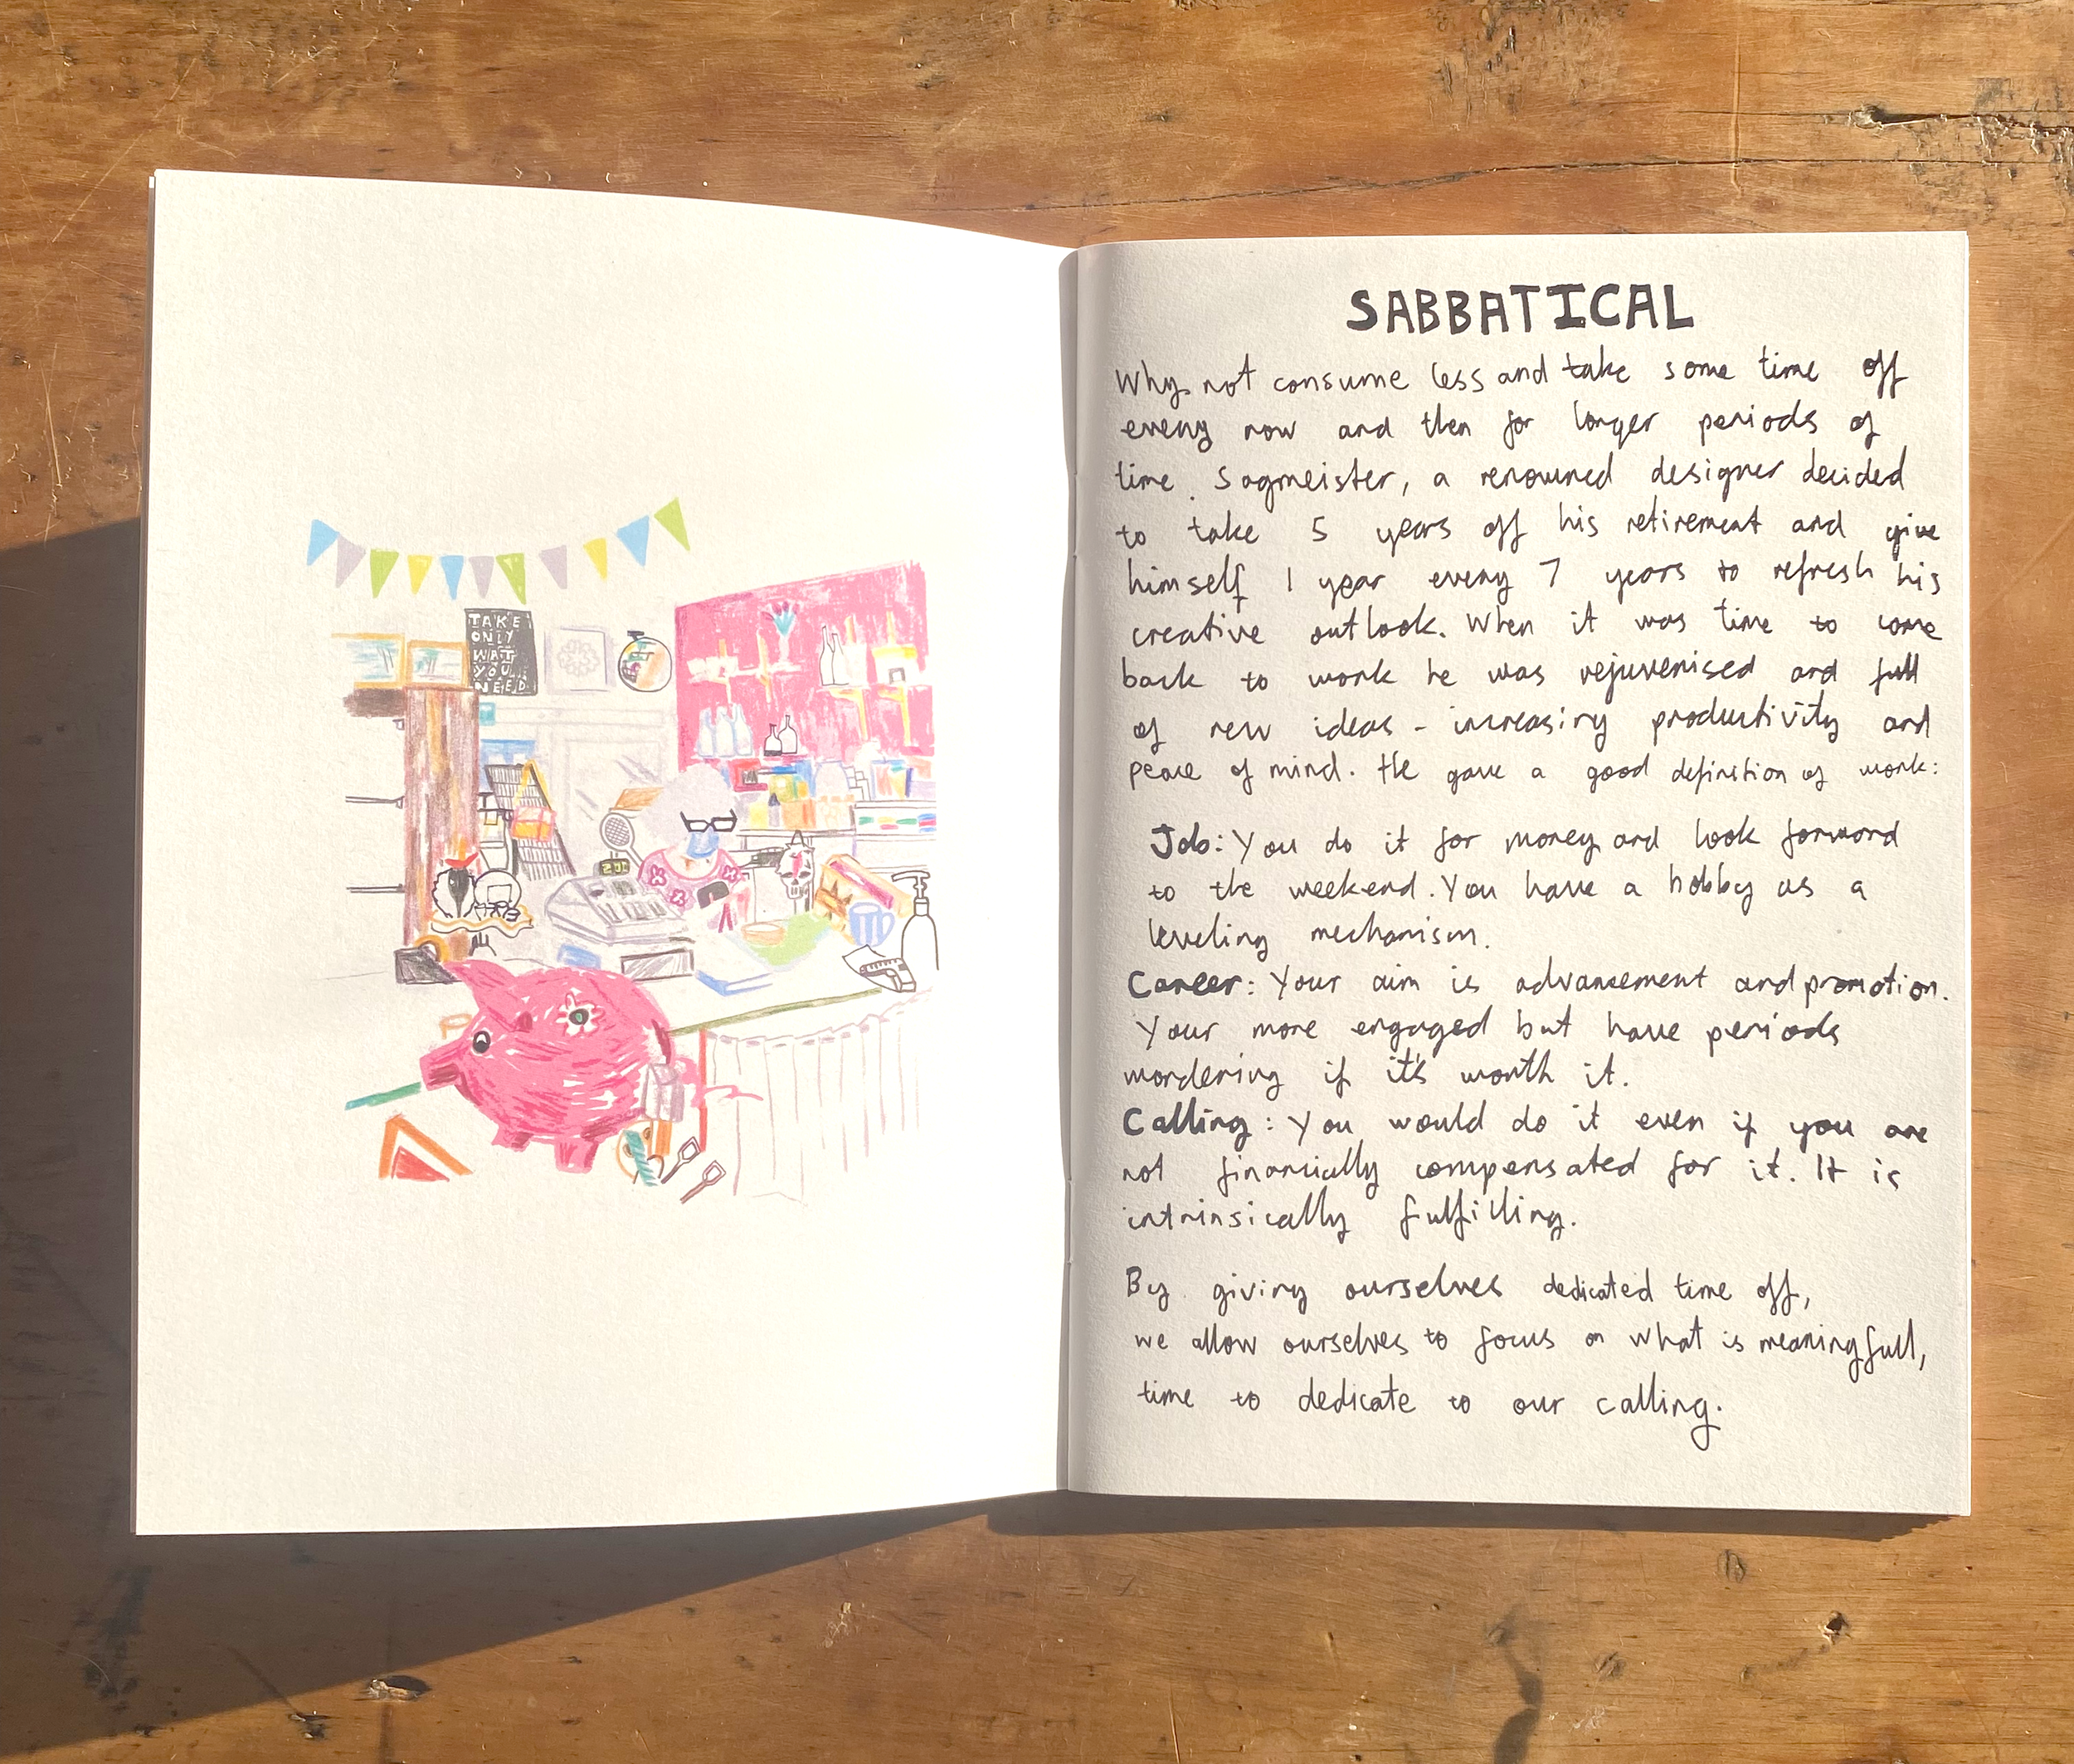 TAKE
ONLY
WAT
YOU
NEED
SABBATICAL
Why not consume less and take some time off
every now and then for longer periods of
time. Sagmeister, a renowned designer decided
to take 5 years off his retirement and give
himself 1 year every 7 years to refresh his
creative outlook. When it was time to come
back to work he was rejuvenised and full
of new ideas - increasing productivity and
peace of mind. He gave a good definition of work:
Job: You do it for money and look forward
to the weekend. You have a hobby as a
leveling mechanism.
Career: Your aim is advancement and promotion.
Your more engaged but have periods
wordering if it's worth it.
Calling: You would do it even if you are
not financially compensated for it. It is
intrinsically fulfilling.
By giving ourselves dedicated time off,
we allow ourselves to focus on what is meaningfull,
time to dedicate to our calling.